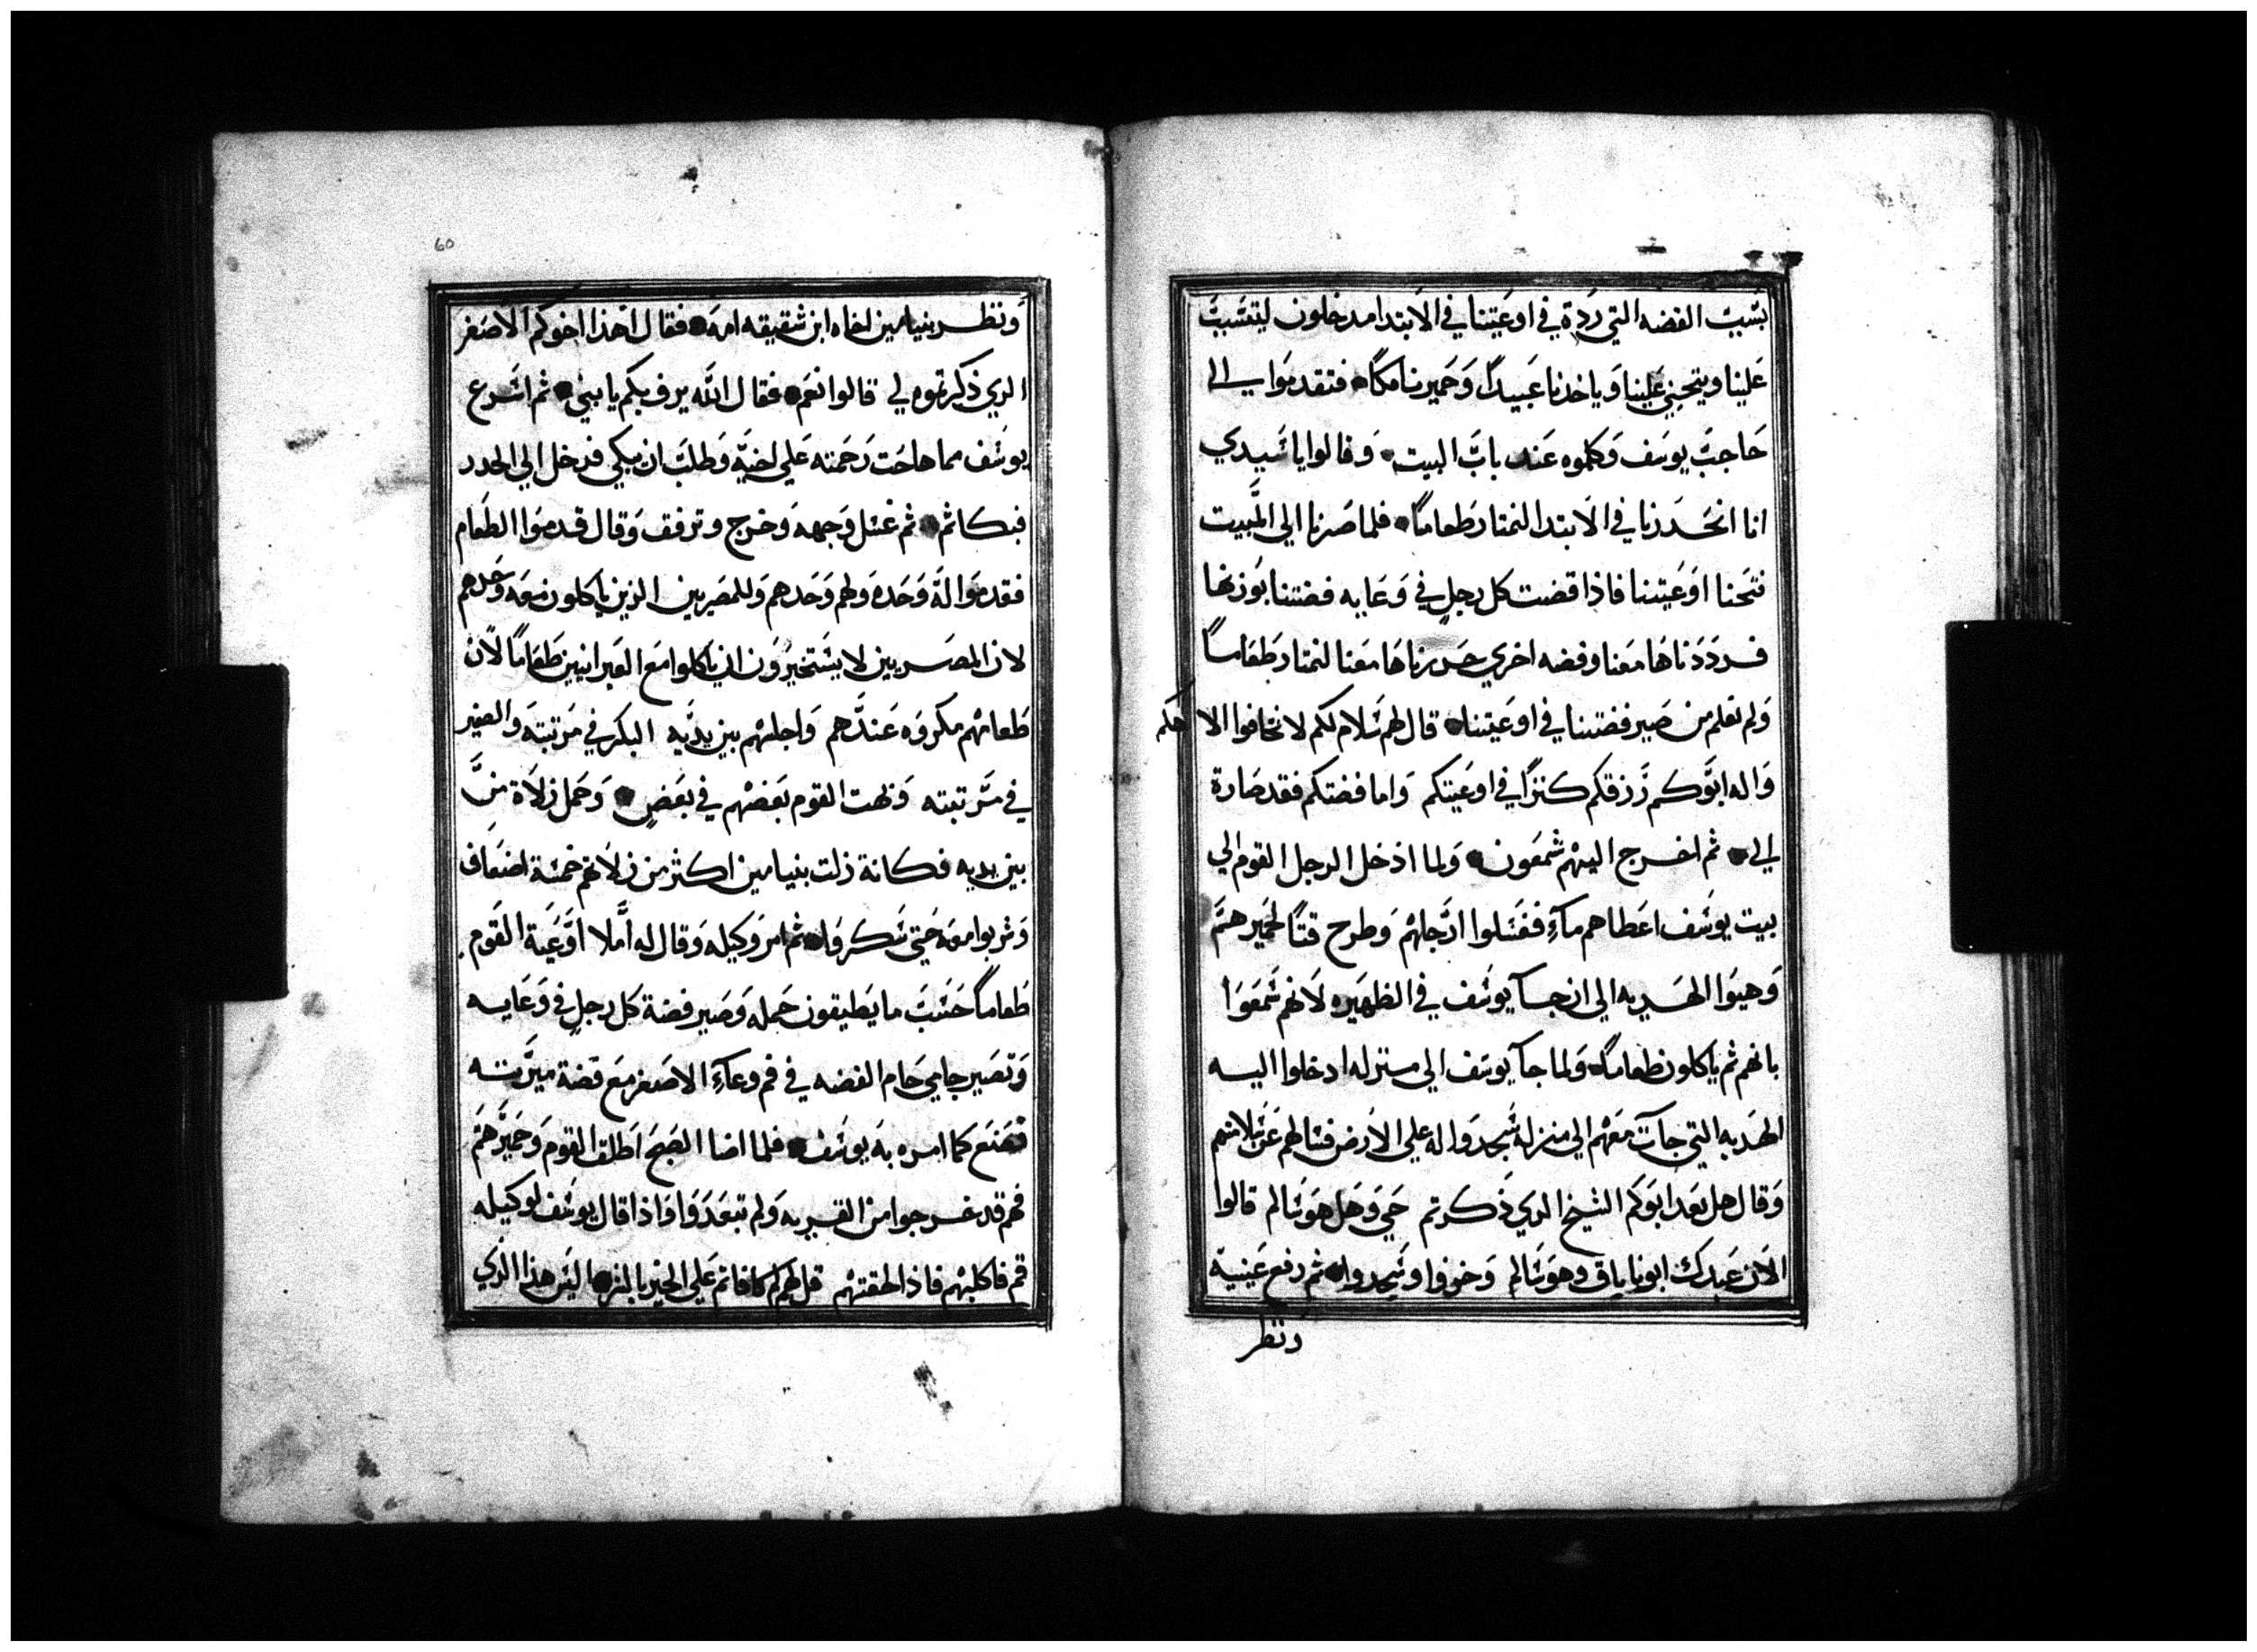 بسبب الفضه التي ردة في اوعيتنا في الابتدا مدخلون ليتسبب
علينا ويتجني علينا وياخدنا عبيداً وحميرنا مكاً فتقدموا الى
حاجب يوسف وكلموه عند باب البيت وقالوا يا سيدي
انا انحدرنا في الابتدا لنمتار طعاماً فلما صرنا الي المبيت
فتحنا اوعيتنا فاذا قضت كل رجل في وعايه فضتنا بوزنها
فرددناها معنا وفضه اخري حدرناها معنا لنمتار طعاماً
ولم نعلم من صير فضتنا في اوعيتنا قال لهم سلام لكم لا تخافوا الاهكم
واله ابوكم رزقكم كنزاً في اوعيتكم واما فضتكم فقد صارة
الي ثم اخرج اليهم شمعون ولما ادخل الرجل القوم الي
بيت يوسف اعطاهم مآءً فغسلوا ارجلهم وطرح قتاً لحميرهم
وهيوا الهديه الي ان جآ يوسف في الظهيره لانهم سمعوا
بانهم ثم ياكلون طعاماً ولما جآ يوسف الي منزله ادخلوا اليه
الهديه التي جآت معهم الي منزله سجدوا له علي الارض فسالهم عن سلامتهم
وقال هل بعد ابوكم الشيخ الدي ذكرتم حي وهل هو سالم قالوا
الان عبدك ابونا باق وهو سالم وخروا وسجدوا ثم رفع عينيه
ونظر
60
ونظر بنيامين اخاه ابن شقيقه امه فقال اهذا اخوكم الاصغر
الدي ذكرتموه لي قالوا نعم فقال الله يرف بكم يا بني ثم اسرع
يوسف مما هاجت رحمته علي اخيه وطلب ان يبكي فدخل الي الخدر
فبكا ثم ثم غسل وجهه وخرج وترفق وقال قدموا الطعام
فقدموا له وحده ولهم وحدهم وللمصريين الذين ياكلون معه وحدهم
لان المصريين لا يستخيرون ان ياكلوا مع العبرانيين طعاماً لان
طعامهم مكروه عندهم واجلسهم بين يديه البكر في مرتبته والصغير
في مرتبته وبهت القوم بعضهم في بعض وحمل زلاة من
بين يديه فكانة زلت بنيامين اكثر من زلاتهم خمسة اضعاف
وشربوا معه حتي سكروا ثم امر وكيله وقال له أملا اوعية القوم
طعاماً حسب ما يطيقون حمله وصير فضة كل رجل في وعايه
وتصير جامي جام الفضه في فم وعآء الاصغر مع فضة ميرته
فصنع كما امره به يوسف فلما اضا الصبح اطلق القوم وحميرهم
فهم قد خرجوا من القريه ولم تبعدوا واذا قال يوسف لوكيله
قم فاكلبهم فاذا لحقتهم قل لهم لم كافاتم علي الخير بالشر اليس هذا الذي